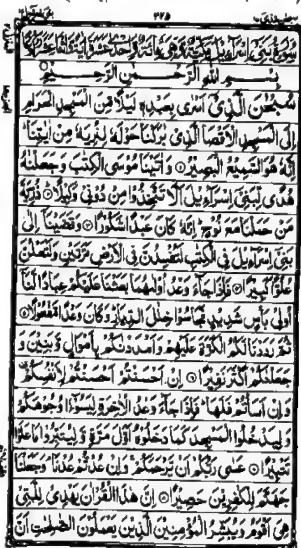 بِسْمِ اللّٰهِ الرَّحْمٰنِ الرَّحِيْمِ
سُبْحٰنَ الَّذِيْۤ اَسْرٰى بِعَبْدِهٖ لَيْلًا مِّنَ الْمَسْجِدِ الْحَرَامِ
اِلَى الْمَسْجِدِ الْاَقْصَا الَّذِيْ بٰرَكْنَا حَوْلَهٗ لِنُرِيَهٗ مِنْ اٰيٰتِنَا
اِنَّهٗ هُوَ السَّمِيْعُ الْبَصِيْرُ وَاٰتَيْنَا مُوْسَى الْكِتٰبَ وَجَعَلْنٰهُ
هُدًى لِّبَنِيْۤ اِسْرَآءِيْلَ اَلَّا تَتَّخِذُوْا مِنْ دُوْنِيْ وَكِيْلًا ذُرِّيَّةَ
مَنْ حَمَلْنَا مَعَ نُوْحٍ اِنَّهٗ كَانَ عَبْدًا شَكُوْرًا وَقَضَيْنَاۤ اِلٰى
بَنِيْۤ اِسْرَآءِيْلَ فِي الْكِتٰبِ لَتُفْسِدُنَّ فِي الْاَرْضِ مَرَّتَيْنِ وَلَتَعْلُنَّ
عُلُوًّا كَبِيْرًا فَاِذَا جَآءَ وَعْدُ اُوْلٰىهُمَا بَعَثْنَا عَلَيْكُمْ عِبَادًا لَّنَاۤ
اُولِيْ بَاْسٍ شَدِيْدٍ فَجَاسُوْا خِلٰلَ الدِّيَارِ وَكَانَ وَعْدًا مَّفْعُوْلًا
ثُمَّ رَدَدْنَا لَكُمُ الْكَرَّةَ عَلَيْهِمْ وَاَمْدَدْنٰكُمْ بِاَمْوَالٍ وَّبَنِيْنَ وَ
جَعَلْنٰكُمْ اَكْثَرَ نَفِيْرًا اِنْ اَحْسَنْتُمْ اَحْسَنْتُمْ لِاَنْفُسِكُمْ
وَاِنْ اَسَاْتُمْ فَلَهَا فَاِذَا جَآءَ وَعْدُ الْاٰخِرَةِ لِيَسُوْٓءٗا وُجُوْهَكُمْ
وَلِيَدْخُلُوا الْمَسْجِدَ كَمَا دَخَلُوْهُ اَوَّلَ مَرَّةٍ وَّلِيُتَبِّرُوْا مَا عَلَوْا
تَتْبِيْرًا عَسٰى رَبُّكُمْ اَنْ يَّرْحَمَكُمْ وَاِنْ عُدْتُّمْ عُدْنَا وَجَعَلْنَا
جَهَنَّمَ لِلْكٰفِرِيْنَ حَصِيْرًا اِنَّ هٰذَا الْقُرْاٰنَ يَهْدِيْ لِلَّتِيْ
هِيَ اَقْوَمُ وَيُبَشِّرُ الْمُؤْمِنِيْنَ الَّذِيْنَ يَعْمَلُوْنَ الصّٰلِحٰتِ اَنَّ